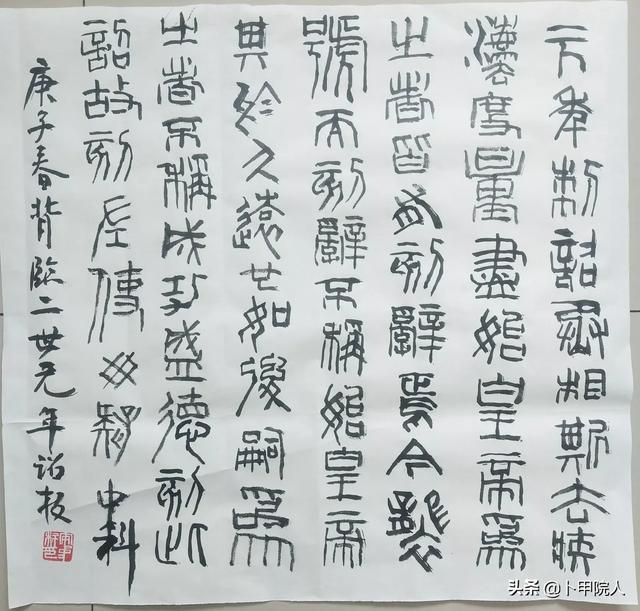 元年制詔丞相斯去疾
灋度量盡始皇帝為
之者皆有刻辭焉今襲
號而刻辭不稱始皇帝
其於久遠也如後嗣為
之者不稱成功盛德刻此
詔故刻左使毋疑 中科
庚子春背臨二世元年詔板
头条 @卜甲院人